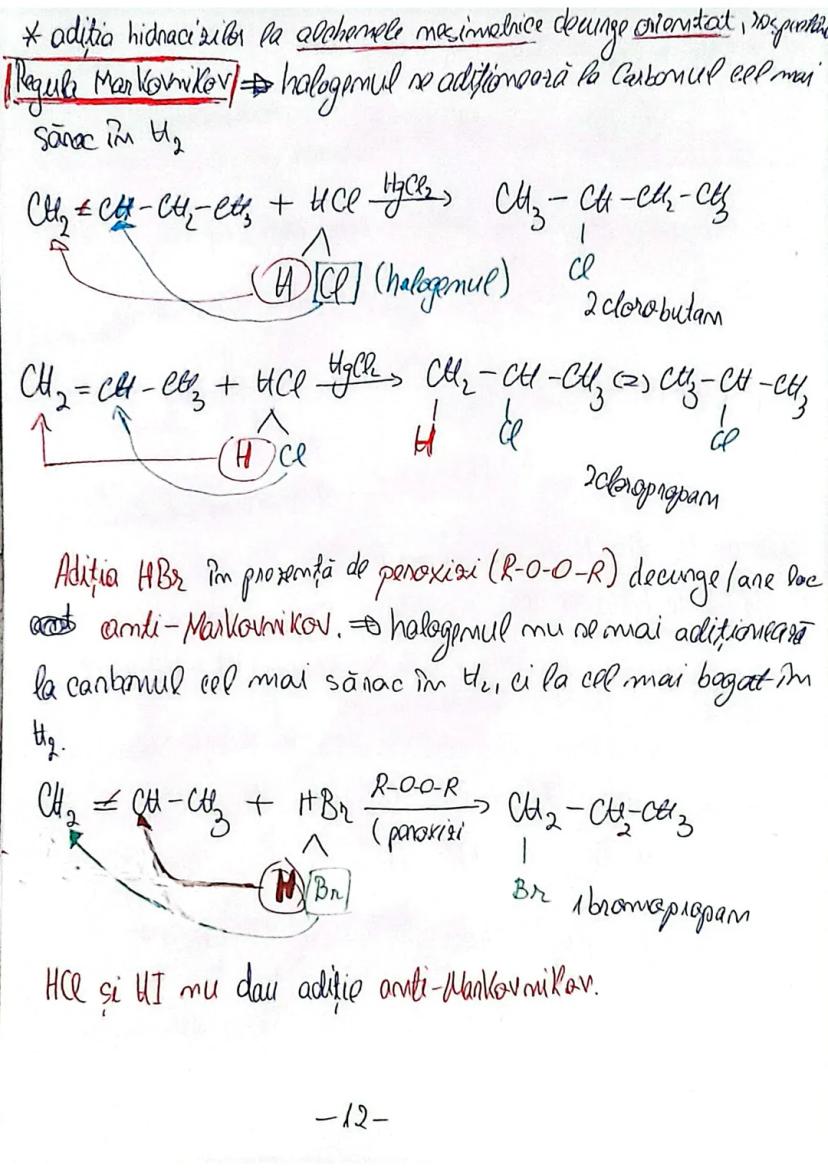 * adiția hidracizilor la alchenele nesimetrice decurge orientat, respectând
Regula Markovnikov => halogenul se adiționează la Carbonul cel mai
sărac în H2
CH2 = CH - CH2 - CH3 + HCl HgCl2 → CH3 - CH - CH2 - CH3
H Cl (halogenul) Cl
2clorobutan
CH2 = CH - CH3 + HCl HgCl2 → CH2 - CH - CH3 (=) CH3 - CH - CH3
H Cl H Cl Cl
2cloropropan
Adiția HBr în prezență de peroxizi (R-O-O-R) decurge/are loc
anti-Markovnikov. => halogenul nu se mai adiționează
la carbonul cel mai sărac în H2, ci la cel mai bogat în
H2.
CH2 = CH - CH3 + HBr R-O-O-R (peroxizi → CH2 - CH2 - CH3
H Br Br 1bromopropan
HCl și HI nu dau adiție anti-Markovnikov.
-12-